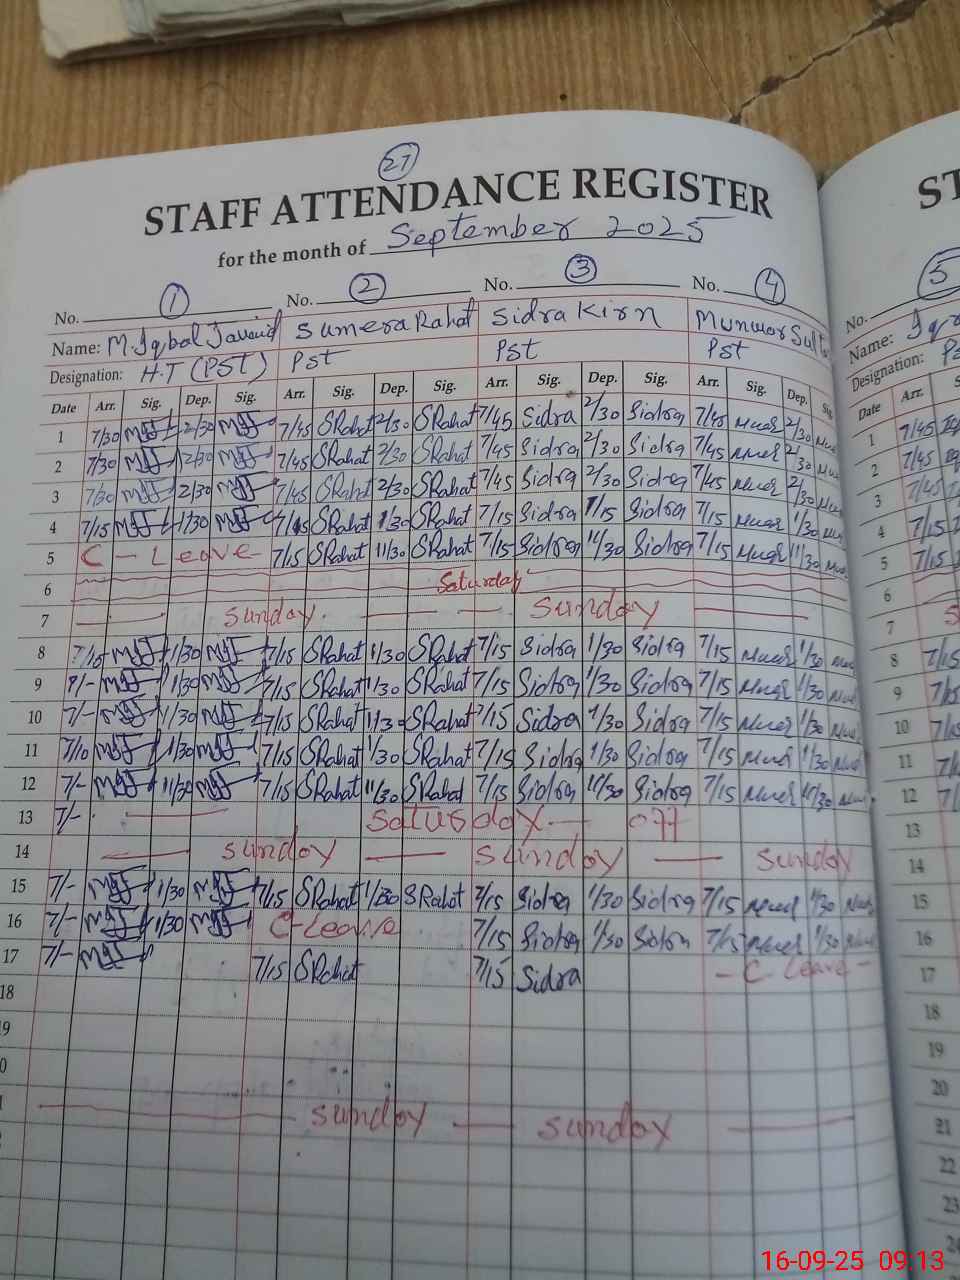 27
STAFF ATTENDANCE REGISTER
for the month of September 2025
No. 1 No. 2 No. 3 No. 4
Name: M. Iqbal Javaid Sumera Rahat Sidra Kirn Munwar Sult
Designation: H.T (PST) Pst PST PST
Date Arr. Sig. Dep. Sig. Arr. Sig. Dep. Sig. Arr. Sig. Dep. Sig. Arr. Sig. Dep. Sig.
1 7/30 2/30 7/45 SRahat 2/30 SRahat 7/45 Sidra 2/30 Sidra 7/45 2/30
2 7/30 2/30 7/45 SRahat 2/30 SRahat 7/45 Sidra 2/30 Sidra 7/45 2/30
3 7/30 2/30 7/45 SRahat 2/30 SRahat 7/45 Sidra 2/30 Sidra 7/45 2/30
4 7/15 1/30 7/15 SRahat 1/30 SRahat 7/15 Sidra 1/15 Sidra 7/15 1/30
5 C - Leave 7/15 SRahat 11/30 SRahat 7/15 Sidra 11/30 Sidra 7/15 11/30
6 Saturday
7 Sunday Sunday
8 7/15 1/30 7/15 SRahat 1/30 SRahat 7/15 Sidra 1/30 Sidra 7/15 1/30
9 7/- 1/30 7/15 SRahat 1/30 SRahat 7/15 Sidra 1/30 Sidra 7/15 1/30
10 7/- 1/30 7/15 SRahat 1/30 SRahat 7/15 Sidra 1/30 Sidra 7/15 1/30
11 7/10 1/30 7/15 SRahat 1/30 SRahat 7/15 Sidra 1/30 Sidra 7/15 1/30
12 7/- 11/30 7/15 SRahat 11/30 SRahat 7/15 Sidra 11/30 Sidra 7/15 11/30
13 7/- Saturday - off
14 Sunday Sunday Sunday
15 7/- 1/30 7/15 SRahat 1/30 SRahat 7/15 Sidra 1/30 Sidra 7/15 1/30
16 7/- 1/30 C-Leave 7/15 Sidra 1/30 Sidra 7/15 1/30
17 7/- 7/15 SRahat 7/15 Sidra - C Leave -
18
9
0
1 Sunday Sunday
ST
5
No.
Name:
Designation:
Date Arr.
1 7/45
2 7/45
3 7/45
4 7/15
5 7/15
6
7
8 7/15
9 7/15
10 7/15
11
12
13
14
15
16
17
18
19
20
21
22
23
24
16-09-25 09:13